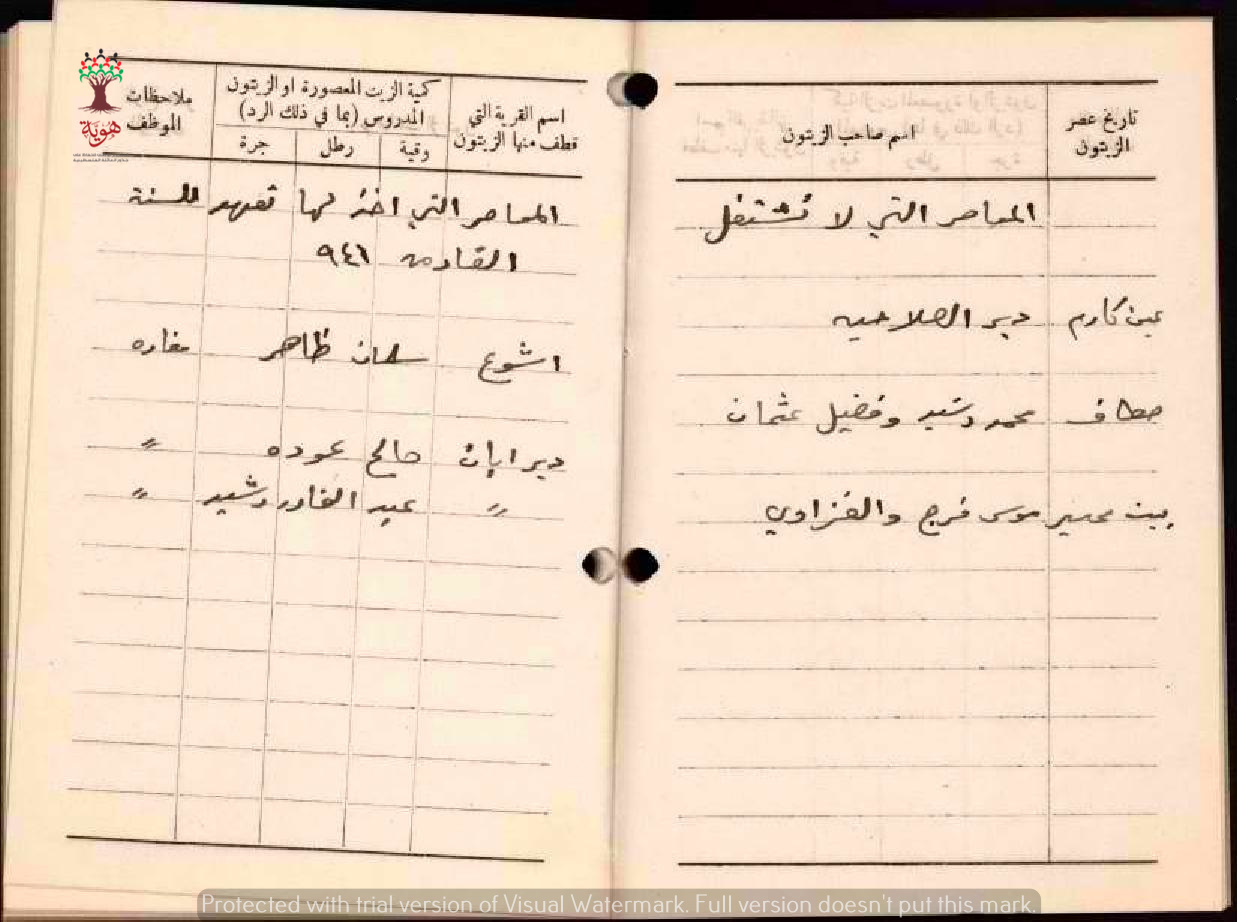 تاريخ عصر الزيتون
اسم صاحب الزيتون
المعاصر التي لا تشتغل
عين كارم دير الصلاحيه
صطاف محمد رشيد وفضيل عثمان
بيت محسير موسى فرج والغزاوي
اسم القرية التي قطف منها الزيتون
كمية الزيت المعصورة او الزيتون
المدروس (بما في ذلك الرد)
وقية رطل جرة
ملاحظات الموظف
هوية
المعاصر التي اخذ لها تعهد للسنة
القادمه ٩٤١
اشوع سلمان ظاهر مغاره
ديرابان صالح عوده "
" عبد القادر رشيد "
Protected with trial version of Visual Watermark. Full version doesn't put this mark.